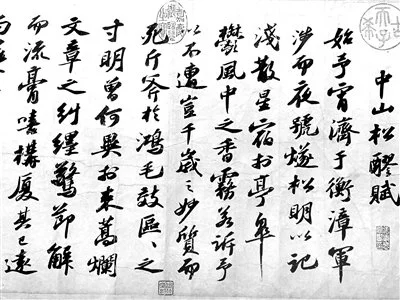 中山松醪賦
始予宵濟于衡漳軍
涉而夜號燧松明以記
淺散星宿於亭皋
鬱風中之香霧若訴予
以不遭豈千歲之妙質而
死斤斧於鴻毛效區區之
寸明曾何異於束蒿爛
文章之糾纆驚節解
而流膏嘻構廈其已遠